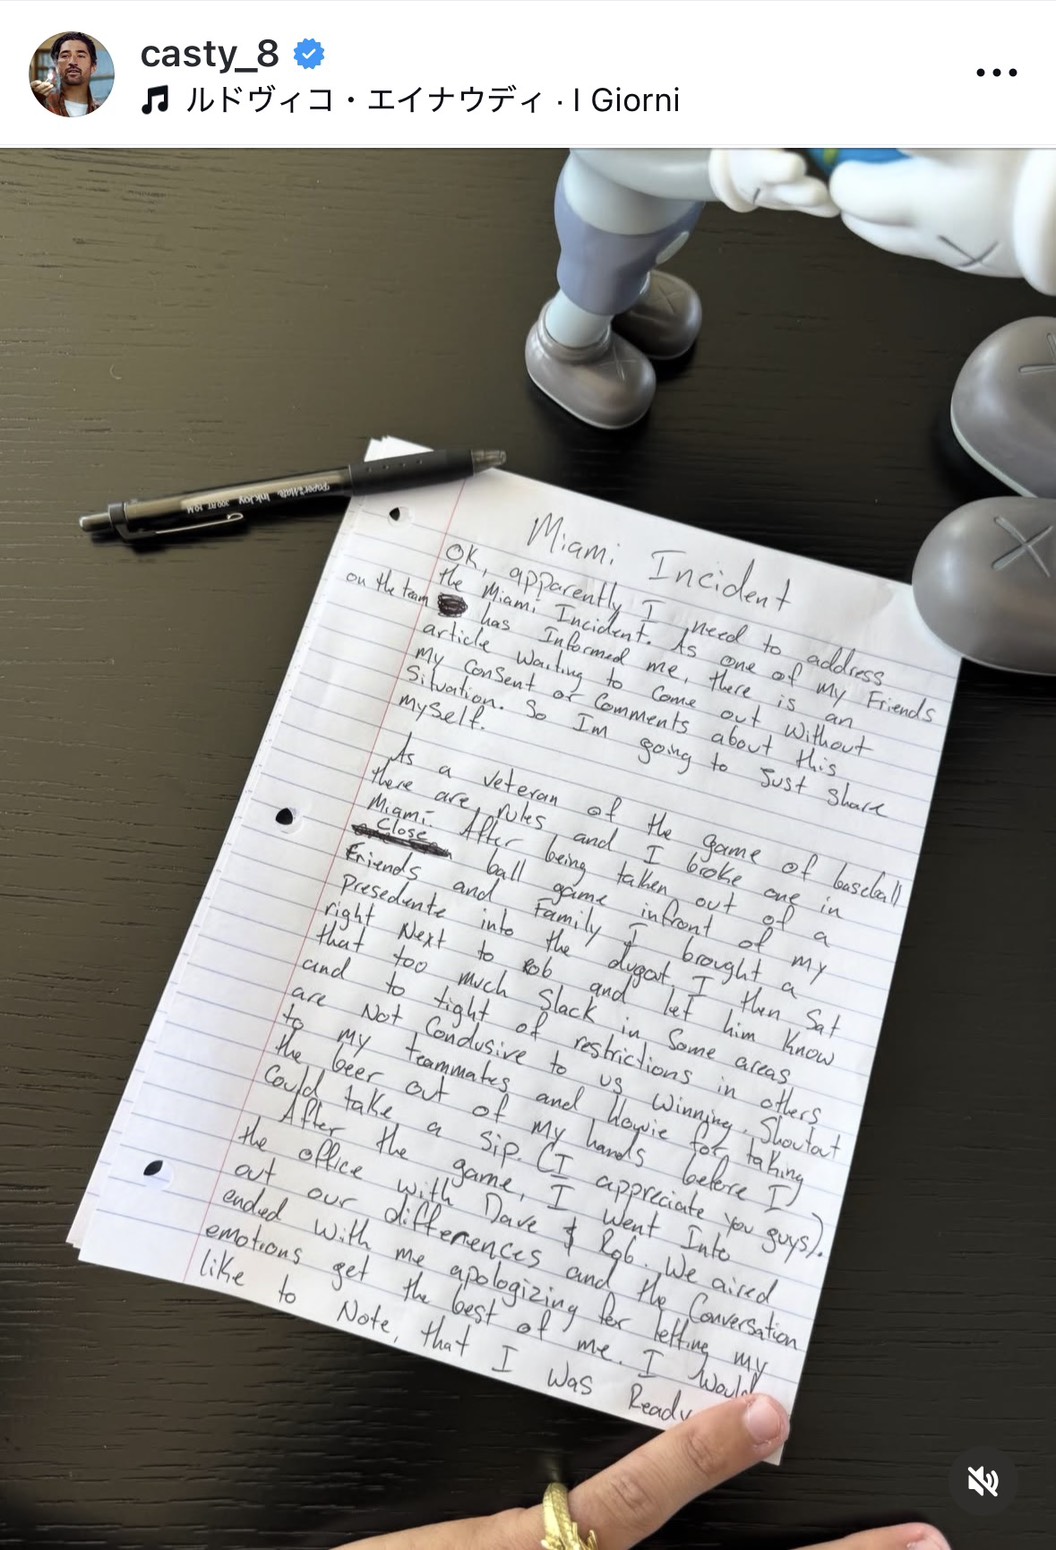 casty_8
ルドヴィコ・エイナウディ · I Giorni
PaperMate InkJoy
Miami Incident
OK, apparently I need to address
the Miami Incident. As one of my Friends
on the team has Informed me, there is an
article waiting to come out without
my consent or comments about this
Situation. So Im going to Just share
myself.
As a veteran of the game of baseball
there are rules and I broke one in
Miami. After being taken out of a
Close ball game infront of my
Friends and Family I brought a
Presedente into the dugout, I then Sat
right Next to Rob and let him Know
that too much Slack in Some areas
and to tight of restrictions in others
are Not Condusive to us winning. Shoutout
to my teammates and howie for taking
the beer out of my hands before I
Could take a sip. (I appreciate you guys).
After the game, I went Into
the office with Dave & Rob. We aired
out our differences and the Conversation
ended with me apologizing for letting my
emotions get the best of me. I would
like to Note, that I was Ready